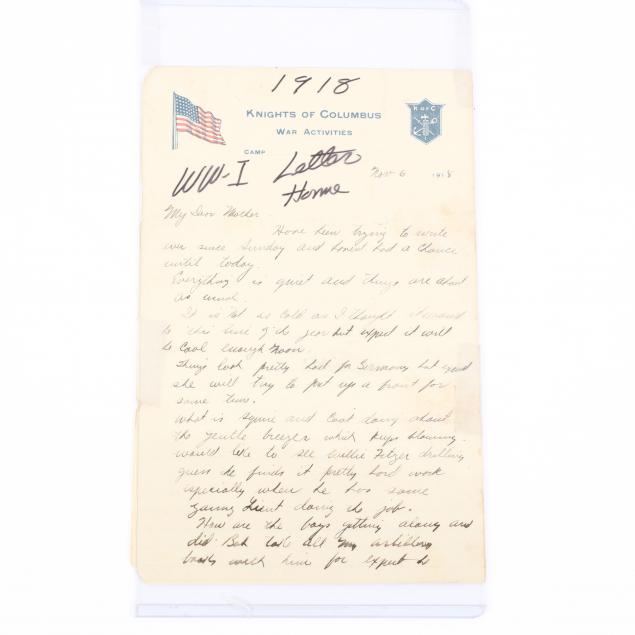 1918
KNIGHTS OF COLUMBUS
WAR ACTIVITIES
K of C
CAMP
WW-I Letter
Home
Nov 6 1918
My Dear Mother.
Have been trying to write
ever since Sunday and havent had a chance
until today.
Everything is quiet and things are about
as usual.
It is not as cold as I thought it would
be this time of the year but expect it will
be cool enough soon.
Things look pretty bad for Germany but
she will try to put up a front for
some time.
What is Squire and doing about
the gentle breezes which keeps blowing.
would like to see Willie drilling
guess he finds it pretty hard work
especially when he has some
young Lieut doing the job.
How are the boys getting along and
did Bob take all my artillery
books with him for expect to